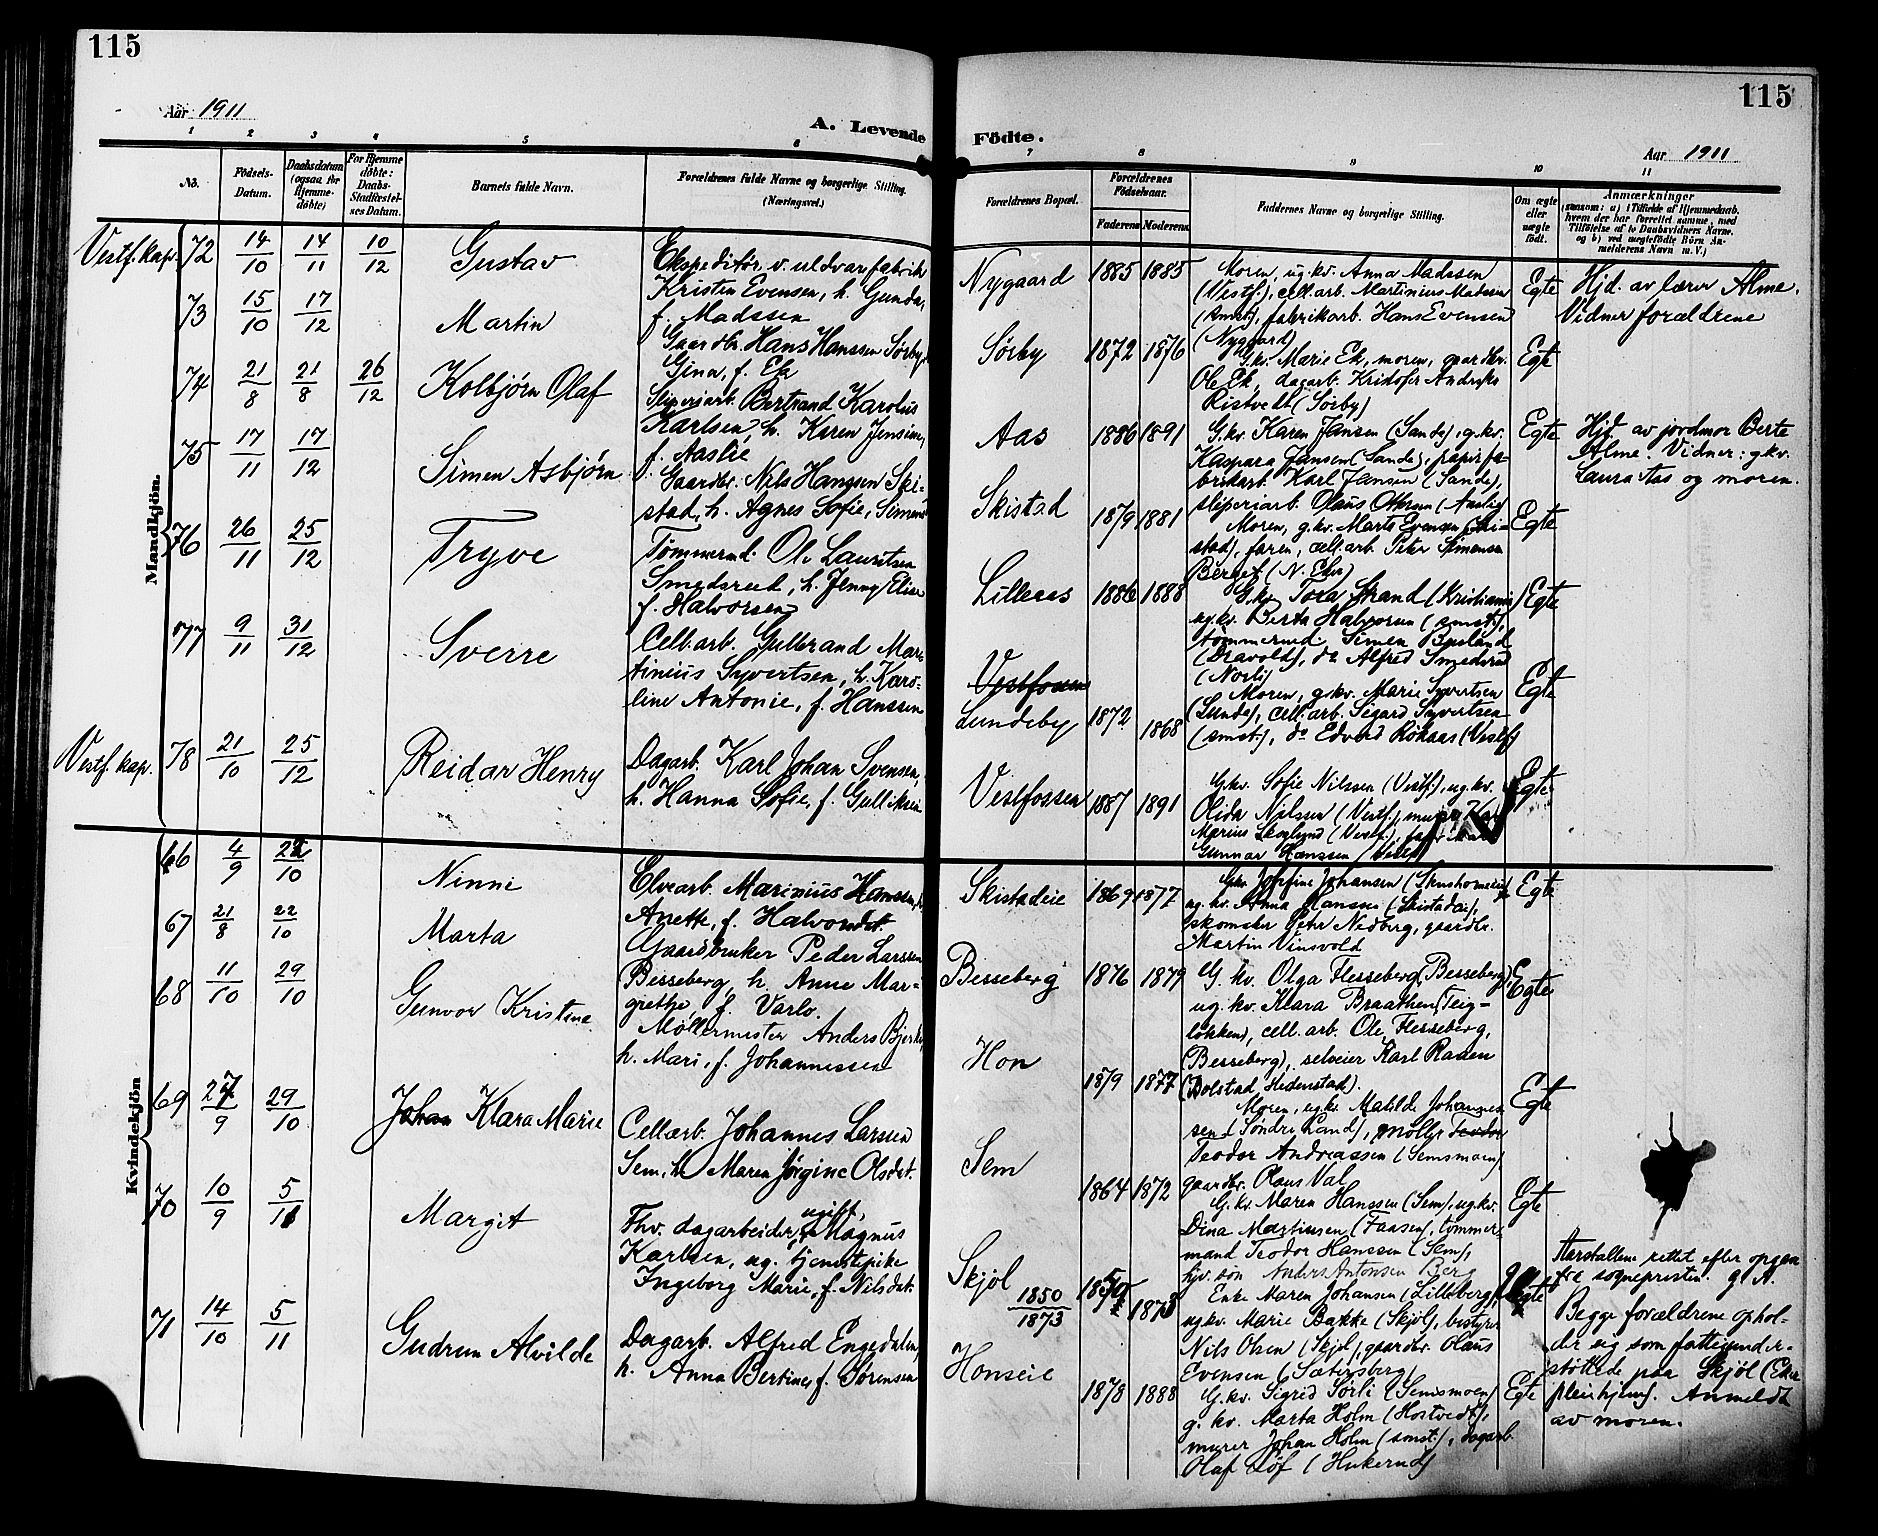 115
115
Aar 1911
A. Levende Födte.
Aar 1911
1 2 3 4 5 6 7 8 9 10 11
No.
Födsels-Datum.
Daabsdatum (ogsaa for Hjemmedöbte)
For Hjemmedöbte: Daabs-Stadfæstelses Datum.
Barnets fulde Navn.
Forældrenes fulde Navne og borgerlige Stilling. (Næringsvei.)
Forældrenes Bopæl.
Forældrenes Födselsaar.
Faderens Moderens
Faddernes Navne og borgerlige Stilling.
Om ægte eller uægte födt.
Anmærkninger
(saasom: a) i Tilfælde af Hjemmedaab, hvem der har forrettet samme, med Tilföielse af to Daabsvidners Navne, og b) ved uægtefödte Börn Anmelderens Navn m.V.)
Mandkjön.
Vestf. kap. 72 14/10 14/11 10/12 Gustav
Ekspeditør v. uldvarefabrik
Kristen Evensen, h. Gunda,
f. Madssen
Nygaard 1885 1885
Moren, ug.kv. Anna Madssen
(Vestf.), cell.arb. Martinius Madssen
(smst.), fabrikarb. Hans Evensen
(Nygaard)
Egte
Hjd. av lærer Alme.
Vidner forældrene
73 15/10 17/12 Martin
Gaardbr. Hans Hanssen Sørby,
Gina, f. Ek
Sørby 1872 1876
G.kv. Marie Ek, moren, gaardbr.
Ole Ek, dagarb. Kristofer Andreas
Ristvedt (Sørby)
Egte
74 21/8 21/8 26/12 Kolbjørn Olaf
Sliperiarb. Bertrand Karolus
Karlsen, h. Karen Jensine,
f. Aaslie
Aas 1886 1891
G.kv. Karen Jansen (Sande), g.kv.
Kaspara Jansen (Sande), papirfa-
brikarb. Karl Jansen (Sande),
sliperiarb. Olaus Ottersen (Aaslie)
Egte
Hjd. av jordmor Berte
Alme. Vidner: g.kv.
Laura Aas og moren.
75 17/11 17/12 Simen Asbjørn
Gaardbr. Nils Hanssen Ski-
stad, h. Agnes Sofie, Simens
Skistad 1879 1881
Moren, g.kv. Marte Evensen (Ski-
stad), faren, cell.arb. Peter Simensen
Berget (N. Eker)
Egte
76 26/11 25/12 Tryve
Tømmermd. Ole Lauritsen
Smedsrud, h. Jenny Elise
f. Halvorsen
Lilleaas 1886 1888
G.kv. Tora Strand (Kristiania)
ug.kv. Berta Halvorsen (smst.),
tømmermd. Simen Bysland
(Dravold), do Alfred Smedsrud
(Norli)
Egte
77 9/11 31/12 Sverre
Cell.arb. Gulbrand Mar-
tinius Syvertsen, h. Karo-
line Antonie, f. Hanssen
Vestfossen
Lundeby 1872 1868
Moren, g.kv. Marie Syvertsen
(Lunde), cell.arb. Sigard Syvertsen
(smst.), do Edvard Røkaas (Vestf)
Egte
Vestf. kap. 78 21/10 25/12 Reidar Henry
Dagarb. Karl Johan Svensen,
h. Hanna Sofie, f. Gulliksen
Vestfossen 1887 1891
G.kv. Sofie Nilssen (Vestf.), ug.kv.
Olida Nilssen (Vestf.), murer Karl
Marius Skoglund (Vestf.),
Gunnar Hanssen
Egte
Kvindekjön
66 4/9 22/10 Ninni
Elvearb. Marinius Hanssen, h.
Anette, f. Halvorsdt.
Skistadeie 1869 1877
G.kv. Josefine Johansen
ug.kv. Anna Hanssen (Skistadeie),
skomaker Peter Nedberg, gaardbr.
Martin Vinsvold
Egte
67 21/8 22/10 Marta
Gaardbruker Peder Larssen
Besseberg, h. Anne Mar-
grethe, f. Varlo.
Besseberg 1876 1879
G. kv. Olga Flesseberg (Besseberg),
ug.kv. Klara Braathen (Teig-
løkken), cell.arb. Ole Flesseberg,
(Besseberg), selveier Karl Raaen
(Bolstad, Hedenstad).
Egte
68 11/10 29/10 Gunvor Kristine
Møllermester Anders Bjerke,
h. Mari, f. Johannessen
Hon 1879 1877
Moren, ug.kv. Matilde Johannes-
sen (Søndre Land), møllr. Teodor
Teodor Andreassen (Semsmoen)
gaardbr. Olaus Val
Egte
69 27/9 29/10 Johan Klara Marie
Cellarb. Johannes Larssen
Sem, h. Maren Jørgine Olsdat.
Sem 1864 1872
G.kv. Maren Hanssen (Sem), ug.kv.
Dina Martinsen (Faasen), tømmer-
mand Teodor Hanssen (Sem),
hjv. søn Anders Antonsen Berg
Egte
70 10/9 5/11 Margit
Fhv. dagarbeider, ugift, Magnus
Karlsen, ug. tjenestepike
Ingeborg Marie, f. Nilsdat.
Skjøl 1850/1873 1850 1873
Enke Maren Johansen (Lilleberg),
ug.kv. Marie Bakke (Skjøl), bestyrer
Nils Olsen (Skjøl), gaardbr. Olaus
Evensen (Sætersberg)
Aarstallene rettet efter opgave
fra sognepresten. g. A.
Begge forældrene ophol-
der sig som fattigunder-
støttede paa Skjøl (Eker
pleiehjem). Anmeldt
av moren.
71 14/10 5/11 Gudrun Alvilde
Dagarb. Alfred Engedalen,
h. Anna Bertine, f. Sørensen
Honseie 1878 1888
G.kv. Sigrid Sørli (Semsmoen)
g. kv. Marta Holm (Hostvedt),
murer Johan Holm (smst.), dagarb.
Olaf Løf (Hukerud)
Egte